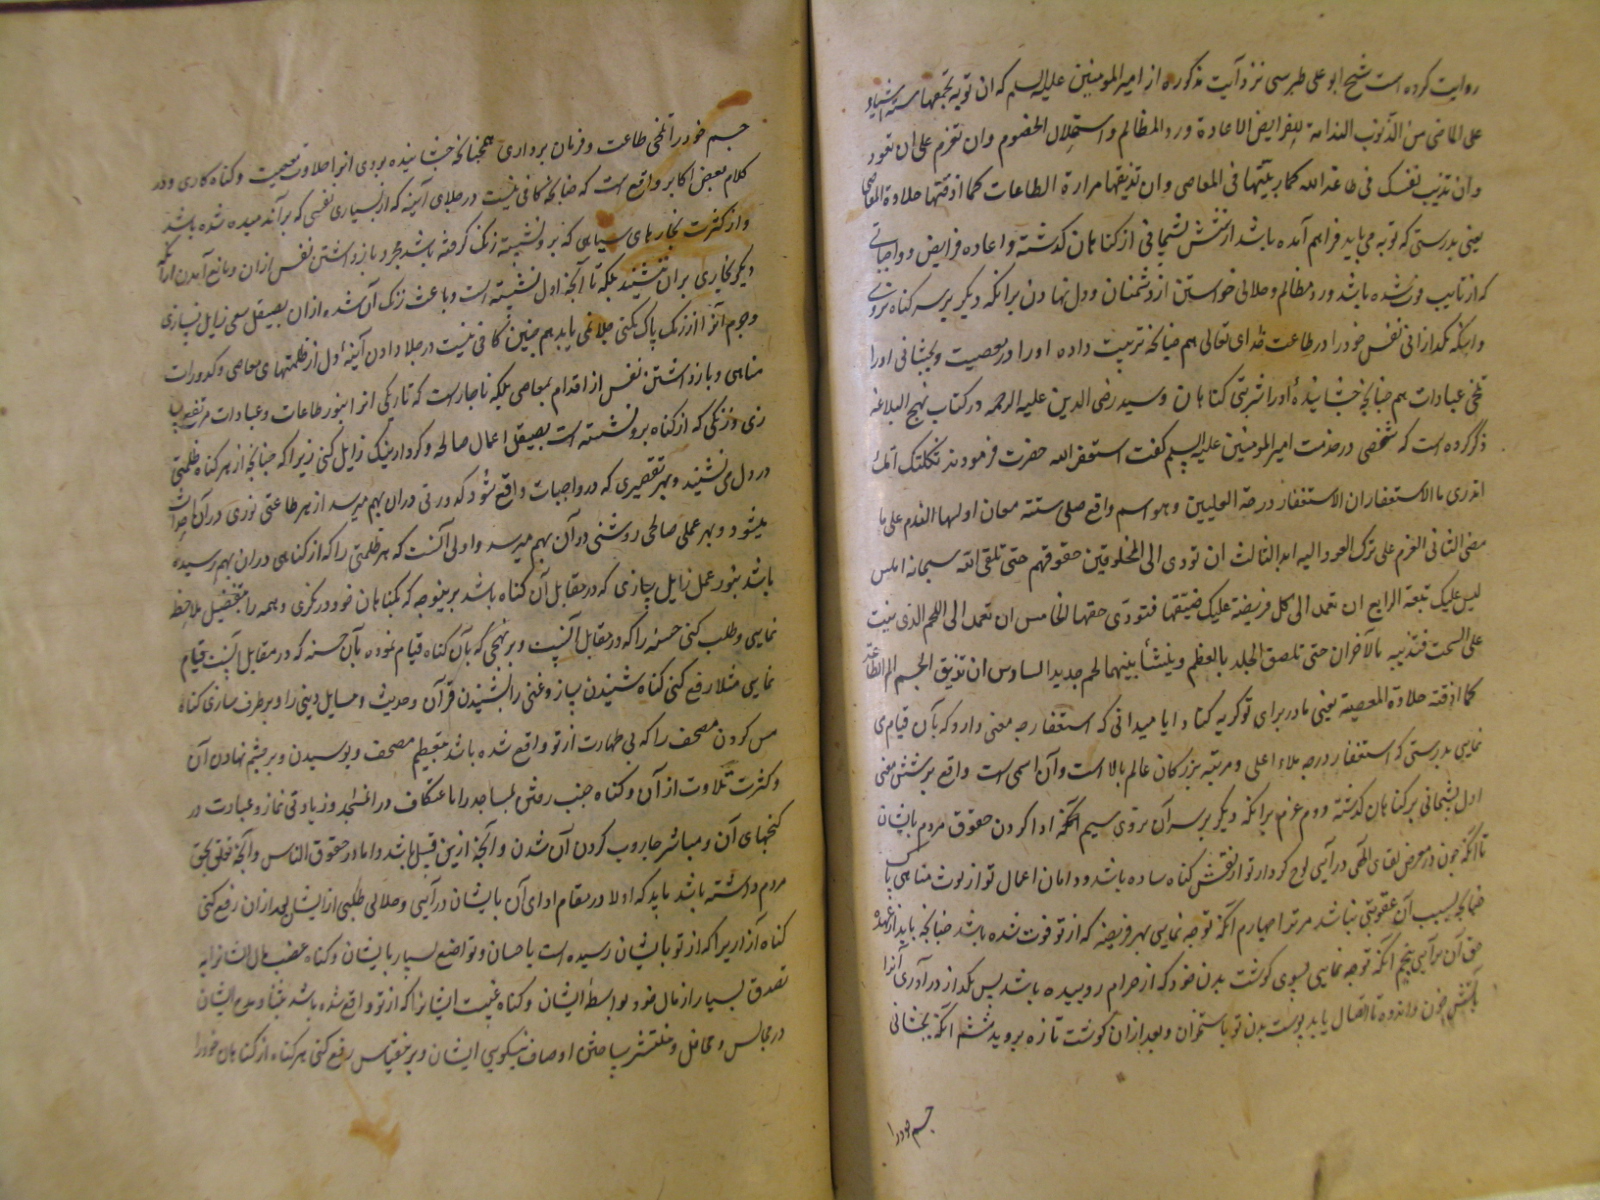 روایت کرده است شیخ ابو علی طبرسی نزد آیت مذکوره از امیرالمومنین علیه السلم که ان توبه یجمعها سته اشیاء
علی الماضی من الذنوب الندامة للفرایض الاعادة و رد المظالم و استحلال الخصوم وان تعزم علی ان تعود
وان تذیب نفسک فی طاعة الله کما ربیتها فی المعاصی وان تذیقها مرارة الطاعات کما اذقتها حلاوة المعاصی
یعنی بدرستی که توبه می باید فراهم آمده باشد از شش پشیمانی از کناهان کذشته و اعاده فرایض و واجباتی
که از تایب فوت شده باشد و رد مظالم و حلالی خواستن از دشمنان و دل نهادن برانکه دیکر بر سر کناه نروی
و اینکه بکدازانی نفس خود را در طاعت خدای تعالی هم چنانکه تربیت داده اورا در معصیت و بچشانی اورا
تلخی عبادات هم چنانکه چشانیده اورا شربتی کناهان و سید رضی الدین علیه الرحمه در کتاب نهج البلاغه
ذکر کرده است که شخصی در خدمت امیرالمومنین علیه السلم کفت استغفر الله حضرت فرمودند ثکلتک امک
اتدری ما الاستغفار ان الاستغفار درجة العلیین و هو اسم واقع علی ستة معان اولها الندم علی ما
مضی الثانی العزم علی ترک العود الیه ابدا الثالث ان تودی الی المخلوقین حقوقهم حتی تلقی الله سبحانه املس
لیس علیک تبعة الرابع ان تعمد الی کل فریضة علیک ضیعتها فتودی حقها الخامس ان تعمد الی اللحم الذی نبت
علی السحت فتذیبه بالاحزان حتی تلصق الجلد بالعظم و ینشأ بینهما لحم جدید السادس ان تذیق الجسم الم الطاعة
کما اذقته حلاوة المعصیة یعنی مادر برای تو کریه کناد ایا میدانی که استغفار چه معنی دارد که بآن قیام می
نمایی بدرستی که استغفار درجه ملاء اعلی و مرتبه بزرکان عالم بالا است و آن اسمی است واقع بر شش معنی
اول پشیمانی بر کناهان کذشته دوم عزم برانکه دیکر بر سر آن نروی سیم انکه ادا کردن حقوق مردم بایشان
تا انکه چون در معرض لقای الهی در آیی لوح کردار تو از نقش کناه ساده باشد و دامان اعمال تو از لوث مناهی پاک
چنانکه بسبب آن عقوبتی نباشد مرترا چهارم انکه توجه نمایی بهر فریضه که از تو فوت شده باشد چنانکه باید از عهده
حق آن برآیی پنجم انکه توجه نمایی بسوی کوشت بدن خود که از حرام روییده باشد پس بکداز درآوری آنرا
باتش حزن و اندوه تا اتصال یابد پوست بدن تو باستخوان و بعد ازان کوشت تازه بروید ششم انکه بچشانی
جسم خودرا
جسم خود را تلخی طاعت و فرمان برداری همچنانکه چشانیده بودی انرا حلاوت معصیت و کناه کاری و در
کلام بعض اکابر واقع است که چنانکه کافی نیست در جلای آیینه که از بسیاری نفسی که بر آن دمیده شده باشد
و از کثرت بخارهای سیاهی که برو نشسته زنک کرفته باشد مجرد بازداشتن نفس ازان و مانع آمدن ازانکه
دیکر بخاری بران ننشیند بلکه تا آنچه اول نشسته است و باعث زنک آن شده ازان بصیقل سعی زایل نسازی
و جرم آنرا از زنک پاک نکنی جلا نمی یابد هم چنین کافی نیست در جلا دادن آیینهٔ دل از ظلمتهای معاصی و کدورات
مناهی و بازداشتن نفس از اقدام بمعاصی بلکه ناچار است که تاریکی انرا بنور طاعات و عبادات مرتفع
زی و زنکی که از کناه برو نشسته است بصیقل اعمال صالحه و کردار نیک زایل کنی زیرا که چنانکه از هر کناه ظلمتی
در دل می نشیند و بهر تقصیری که در واجبات واقع شود کدورتی دران بهم میرسد از هر طاعتی نوری در آن احداث
میشود و بهر عمل صالحی روشنی در آن بهم میرسد و اولی آنست که هر ظلمتی را که از کناهی دران بهم رسیده
باشد بنور عمل زایل سازی که در مقابل آن کناه باشد برینوجه که بکناهان خود در نکری و همه را بتفصیل ملاحظه
نمایی و طلب کنی حسنه را که در مقابل آنست و بر نهجی که بآن کناه قیام نموده بآن حسنه که در مقابل آنست قیام
نمایی مثلا رفع کنی کناه شنیدن ساز و غنی را بشنیدن قرآن و حدیث و مسایل دینی را و بر طرف سازی کناه
مس کردن مصحف را که بی طهارت از تو واقع شده باشد بتعظیم مصحف و بوسیدن و بر چشم نهادن آن
و کثرت تلاوت از آن و کناه جنب رفتن بمساجد را باعتکاف در المسجد و زیادتی نماز و عبادت در
کنجهای آن و مباشر جاروب کردن آن شدن و آنچه ازین قبیل باشد و اما در حقوق الناس و آنچه تعلق بحق
مردم داشته باشد باید که اولا در مقام ادای آن بایشان درآیی و حلالی طلبی از ایشان بعد ازان رفع کنی
کناه آزاریرا که از تو بایشان رسیده است باحسان و تواضع بسیار بایشان و کناه غصب مال ایشانرا به
تصدق بسیار از مال خود بواسطهٔ ایشان و کناه غیبت ایشانرا که از تو واقع شده باشد بثنا و مدح ایشان
در مجالس و محافل و منتشر ساختن اوصاف نیکویی ایشان و برین قیاس رفع کنی هر کناه از کناهان خود را